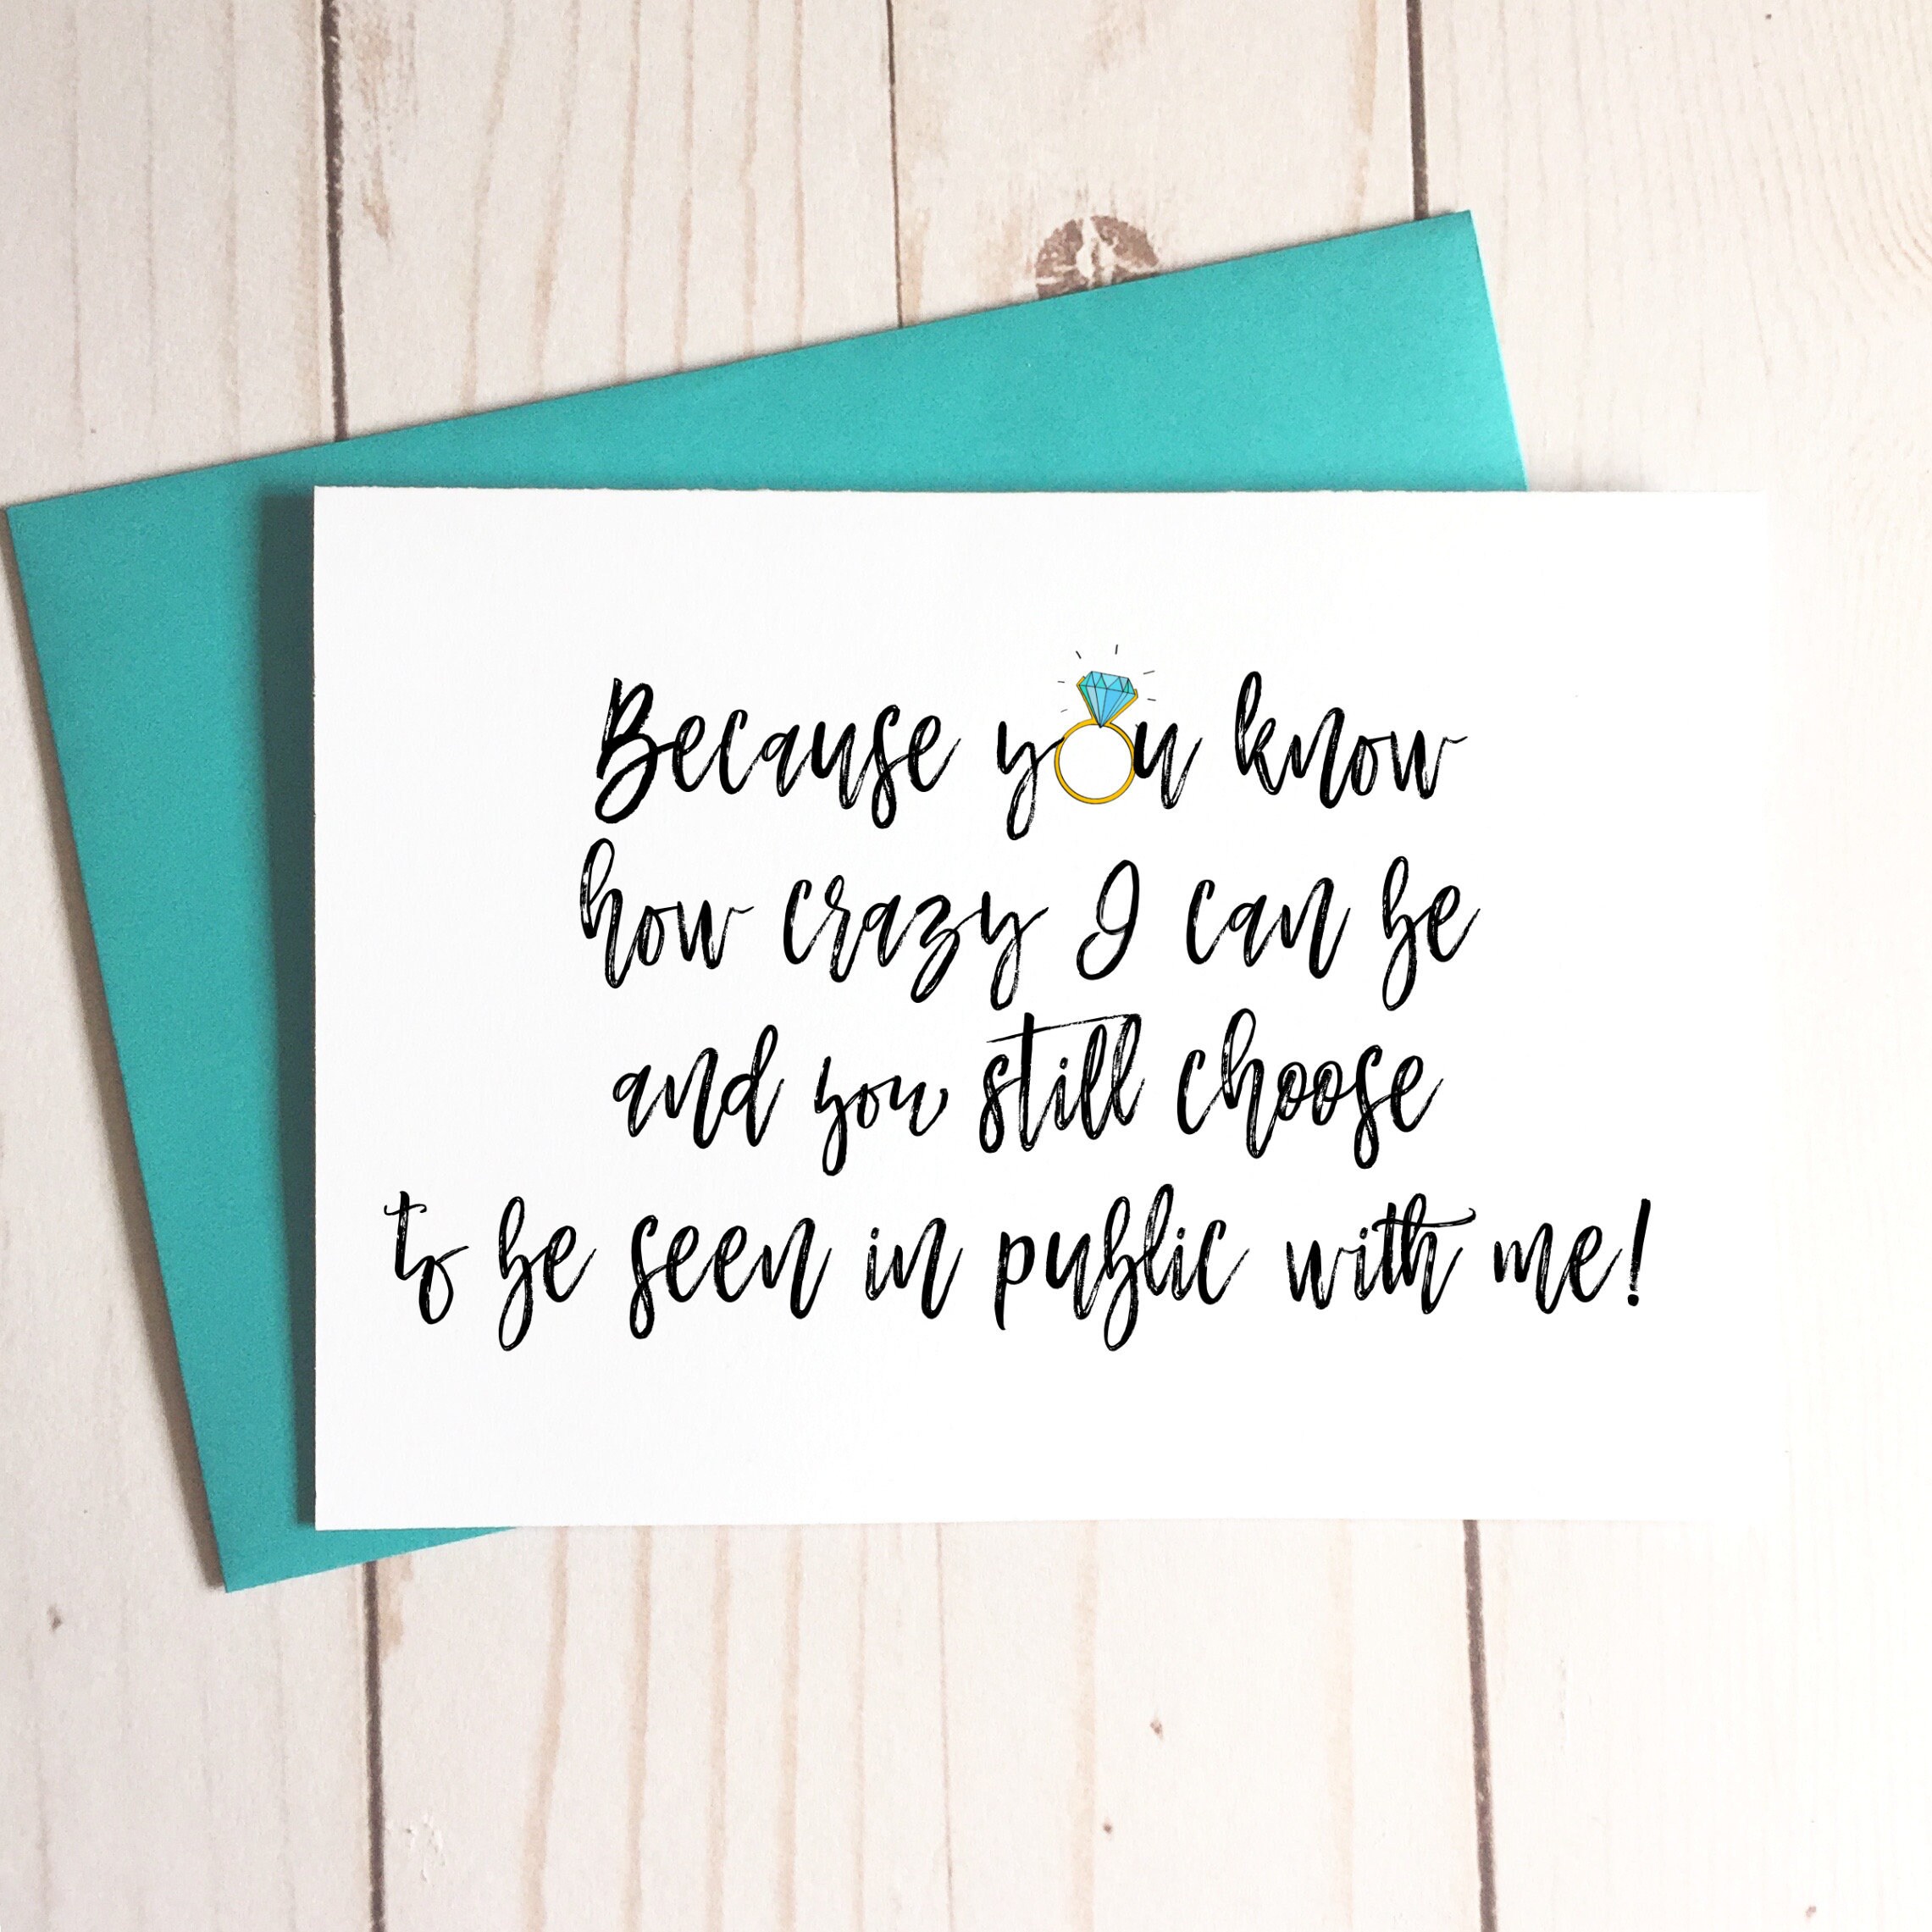 Because you know
how crazy I can be
and you still choose
to be seen in public with me!